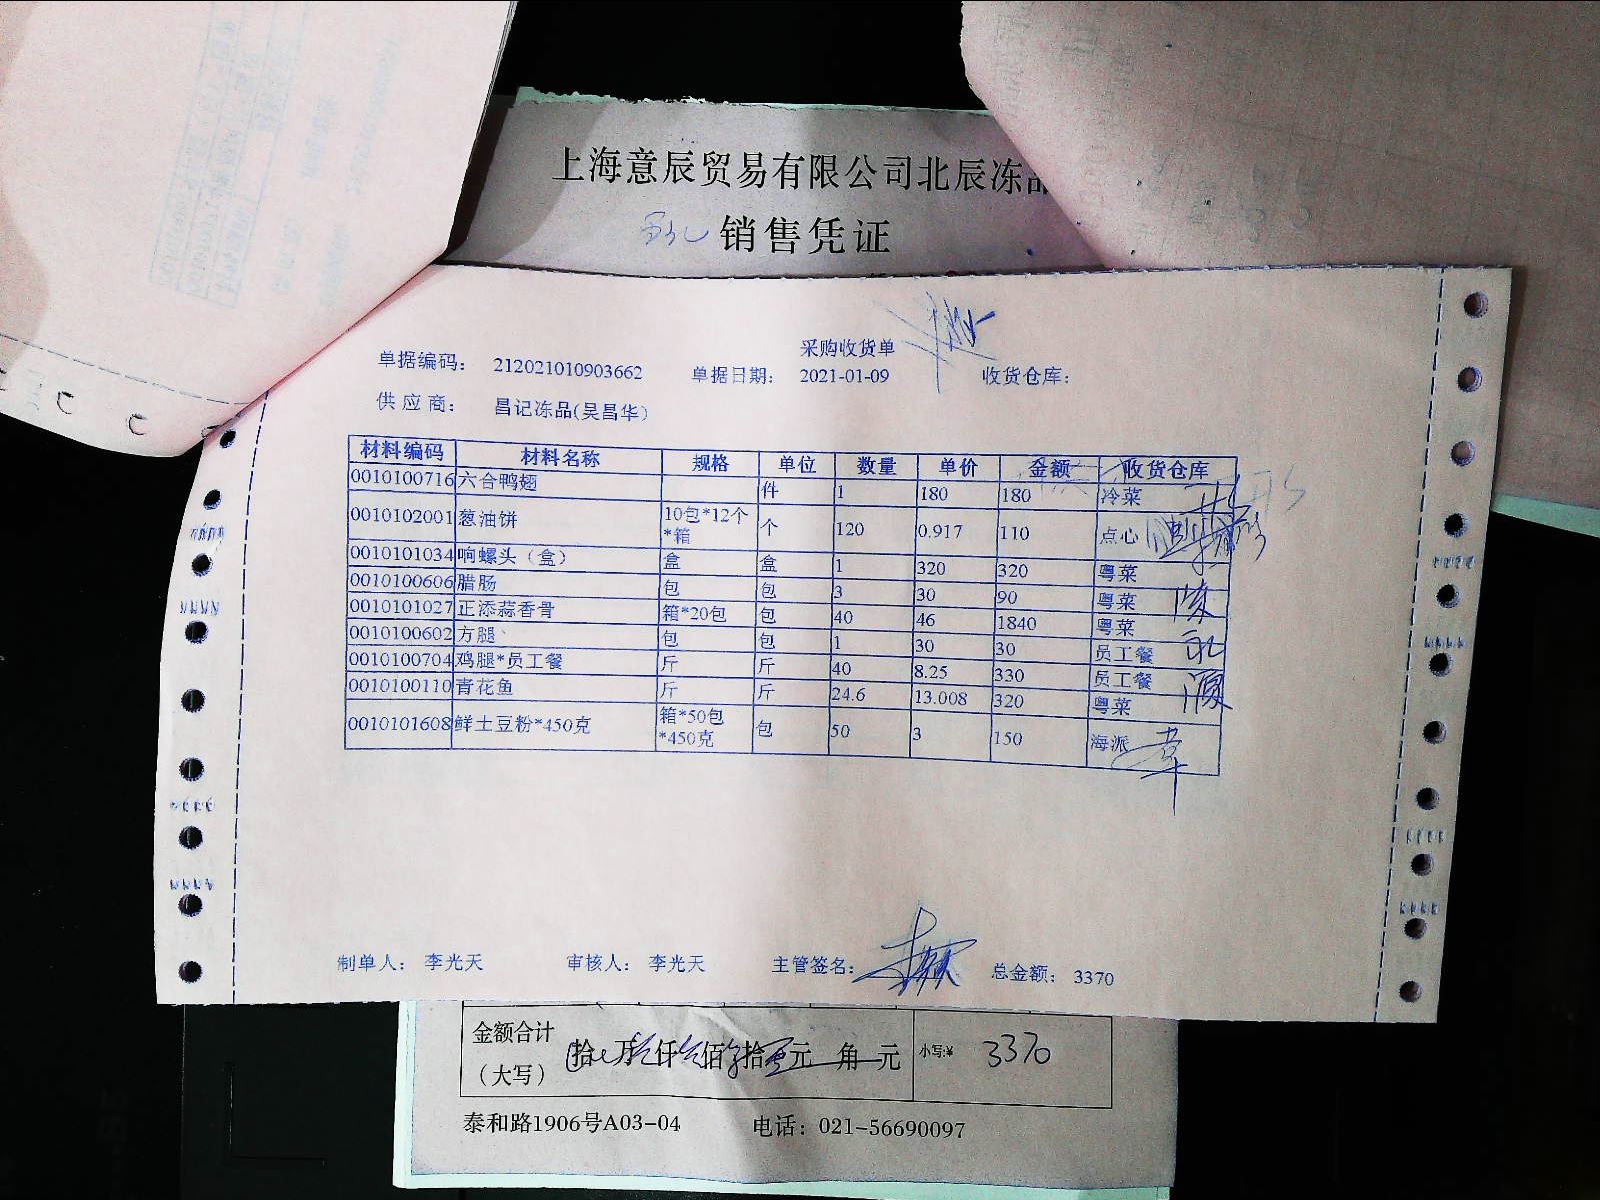 上海意辰贸易有限公司北辰冻品
销售凭证
采购收货单
单据编码： 212021010903662 单据日期： 2021-01-09 收货仓库：
供应商： 昌记冻品(吴昌华)
材料编码 材料名称 规格 单位 数量 单价 金额 收货仓库
0010100716 六合鸭翅 件 1 180 180 冷菜
0010102001 葱油饼 10包*12个*箱 个 120 0.917 110 点心
0010101034 响螺头（盒） 盒 盒 1 320 320 粤菜
0010100606 腊肠 包 包 3 30 90 粤菜
0010101027 正添蒜香骨 箱*20包 包 40 46 1840 粤菜
0010100602 方腿 包 包 1 30 30 员工餐
0010100704 鸡腿*员工餐 斤 斤 40 8.25 330 员工餐
0010100110 青花鱼 斤 斤 24.6 13.008 320 粤菜
0010101608 鲜土豆粉*450克 箱*50包*450克 包 50 3 150 海派
制单人： 李光天 审核人： 李光天 主管签名： 总金额： 3370
金额合计（大写） 拾 万 仟 佰 拾 元 角 元 小写:¥ 3370
泰和路1906号A03-04 电话：021-56690097